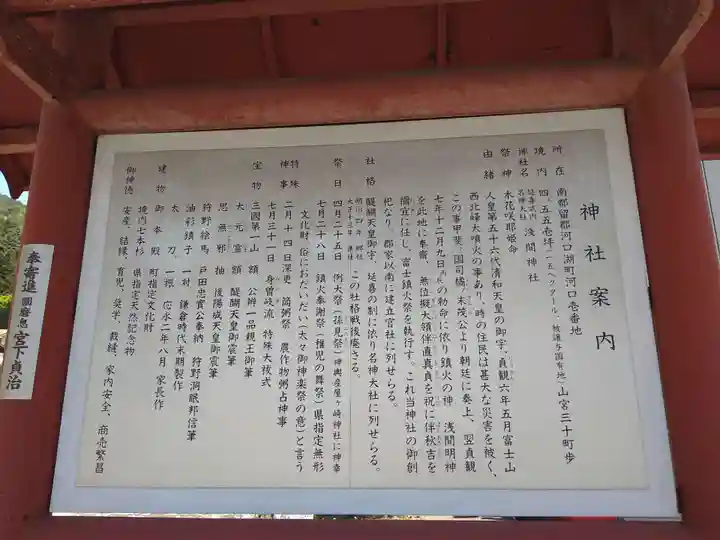 神社案内
所在 南都留郡河口湖町河口壱番地
境内 四、五五壱坪、(一五ヘクタール、被譲与国有地)山宮三十町歩
神社名 延喜式内名神大社 浅間神社
祭神 木花咲耶姫命
由緒 人皇第五十六代清和天皇の御宇、貞観六年五月富士山
西北峰大噴火の事あり、時の住民は甚大な災害を被く、
この事甲斐国司橘末茂公より朝廷に奏上、翌貞観
七年十二月九日の勅命に依り鎮火の神 浅間明神
を此地に奉斎、無位擬大領伴直真貞を祝に伴秋吉を
禰宜に任し、富士鎮火祭を執行す。これ当神社の御創
祀なり、郡家以南に建立官社に列せらる。
醍醐天皇御宇、延喜の制に依り名神大社に列せらる。
社格 この社格戦後廃さる。
祭日 四月二十五日 例大祭(孫見祭)神輿産屋ヶ崎神社に神幸
七月二十八日 鎮火奉謝祭(稚児の舞祭)県指定無形
文化財俗におだいだい(太々御神楽祭の意)と言う
特殊神事 二月十四日深更 筒粥祭 農作物粥占神事
七月三十一日 身曽岐流 特殊大祓式
宝物 三國第一山 額 公辨一品親王御筆
大元霊 額 醍醐天皇御宸筆
思無邪 抽 後陽成天皇御宸筆
狩野絵馬 戸田忠實公奉納 狩野洞眠邦信筆
油彩鏡子 一対 鎌倉時代末期製作
太刀、 一振 応永二年八月 家長作
建物 御本殿 町指定文化財
境内七本杉 県指定天然記念物
御神徳 安産、結縁、育児、奨学、裁縫、家内安全、商売繁昌
奉寄進 國磨息 宮下貞治